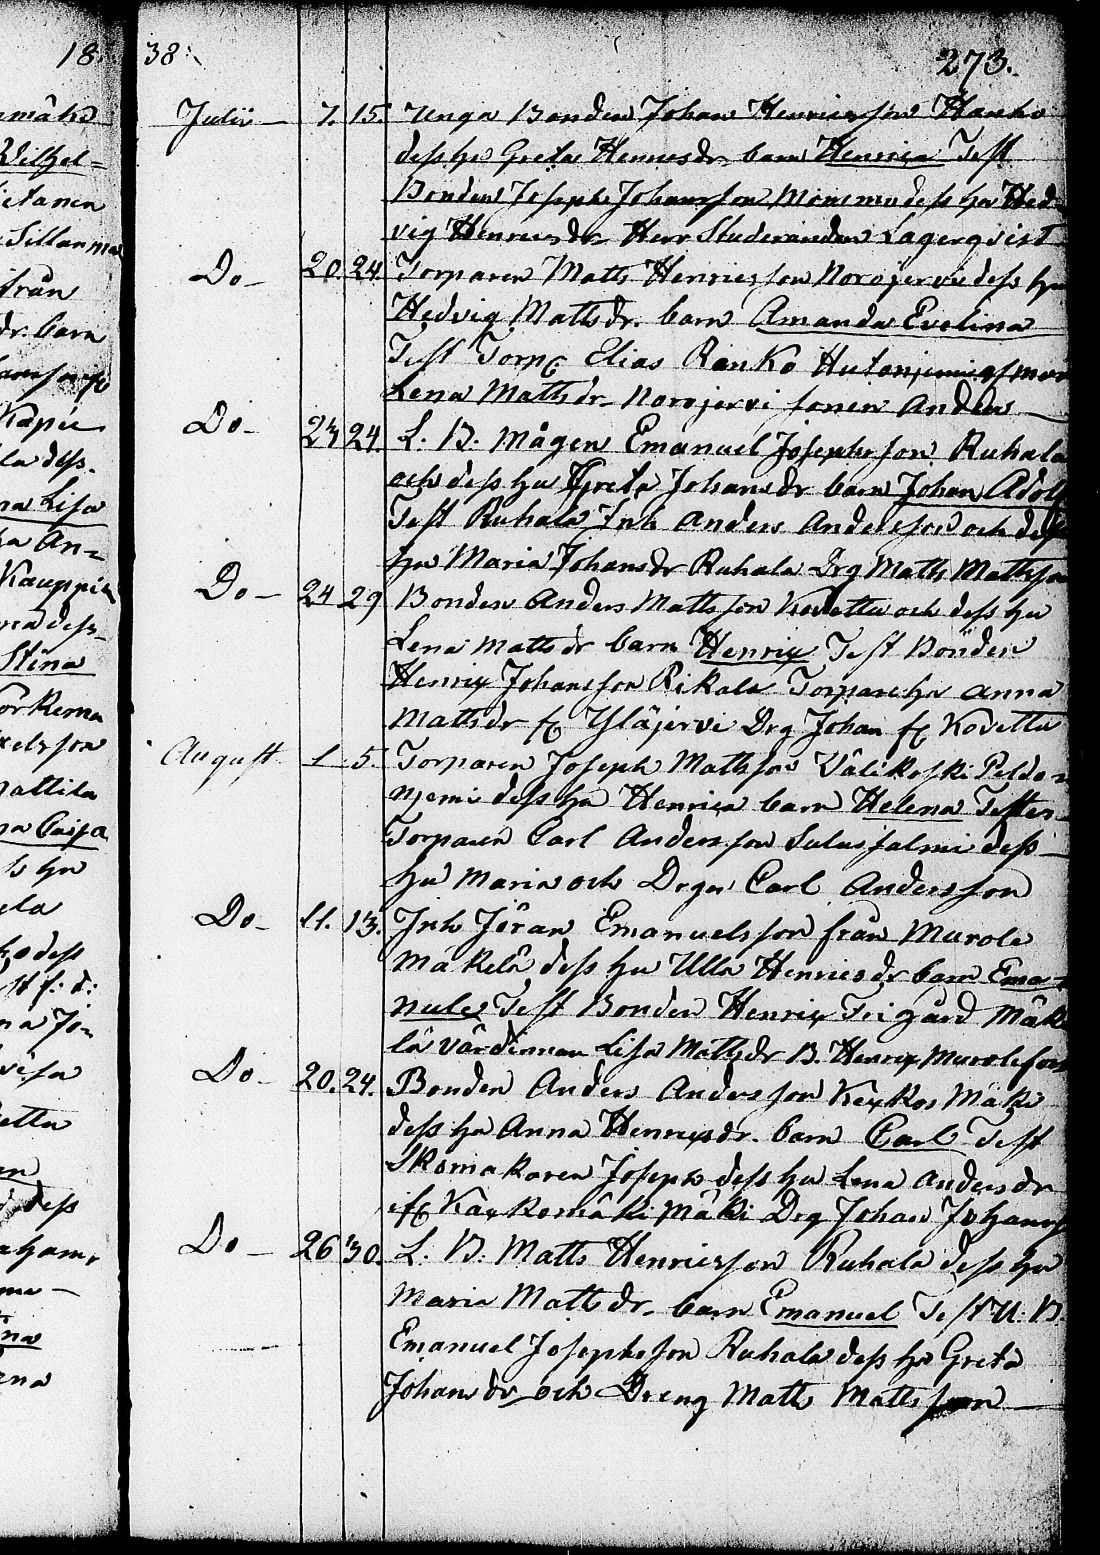 18 38 273.
nmåhd
Wilhel=
ietanen
Sillanma
från
dr. barn
Kapii
la dess
na Lisa
ha An=
Kauppi
na dess
Stina
Kerna
xelsson
Mattila
na Caisa
s hu
ela
ko dess
st f: d:
na Jo=
visa
etta
en
dess
aham
ma —
ina
ena
Julii — 7. 15. Unga Bonden Johan Henricsson Hanko
dess hu Greta Henricsdr barn Henrica Test
Bonden Joseph Johansson Mommo dess hu Hed=
vig Henricsdr Herr Studeranden Lagerqvist
Do — 20. 24. Torparen Matts Henricsson Norojervi dess hu
Hedvig Mattsdr. barn Amanda Evelina
Test Torp Elias Ranko
Lena Mattsdr Norojervi sonen Anders —
Do — 23 24. L. B. Mågen Emanuel Josephsson Ruhala
och dess hu Greta Johansdr barn Johan Adolf
Test Ruhala Inh Anders Andersson och dess
hu Maria Johansdr Ruhala Drg Matts Mattsson
Do — 24 29 Bonden Anders Mattsson Kovettu och dess hu
Lena Mattsdr barn Henrix Test Bonden
Henrix Johansson Rikala Torpare hu Anna
Mattsdr fr Yläjervi Drg Johan fr Kovettu
August 1 5. Torparen Joseph Mattsson Välikoski Peldo=
njemi dess hu Henrica barn Helena Tester
Torparen Carl Andersson Salussalmi dess —
hu Maria och Drgn Carl Andersson
Do — 11. 13. Inh Jöran Emanuelsson från Murole
Mäkelä dess hu Ulla Henricsdr barn Ema=
nuel Test Bonden Henrix Frigård Mäke
lä värdinnan Lisa Mattsdr B. Henrix Murole
Do — 20. 24. Bonden Anders Andersson Keykos Mäki
dess hu Anna Henrixdr. barn Carl Test
Skomakaren Joseph dess hu Lena Andersdr
ifr Käykos Mäki Drg Johan Johanss
Do — 26 30. L. B. Matts Henricsson Ruhala dess hu
Maria Mattsdr. barn Emanuel Test U. B.
Emanuel Josephsson Ruhala dess hu Greta
Johansdr och Dreng Matts Mattsson —